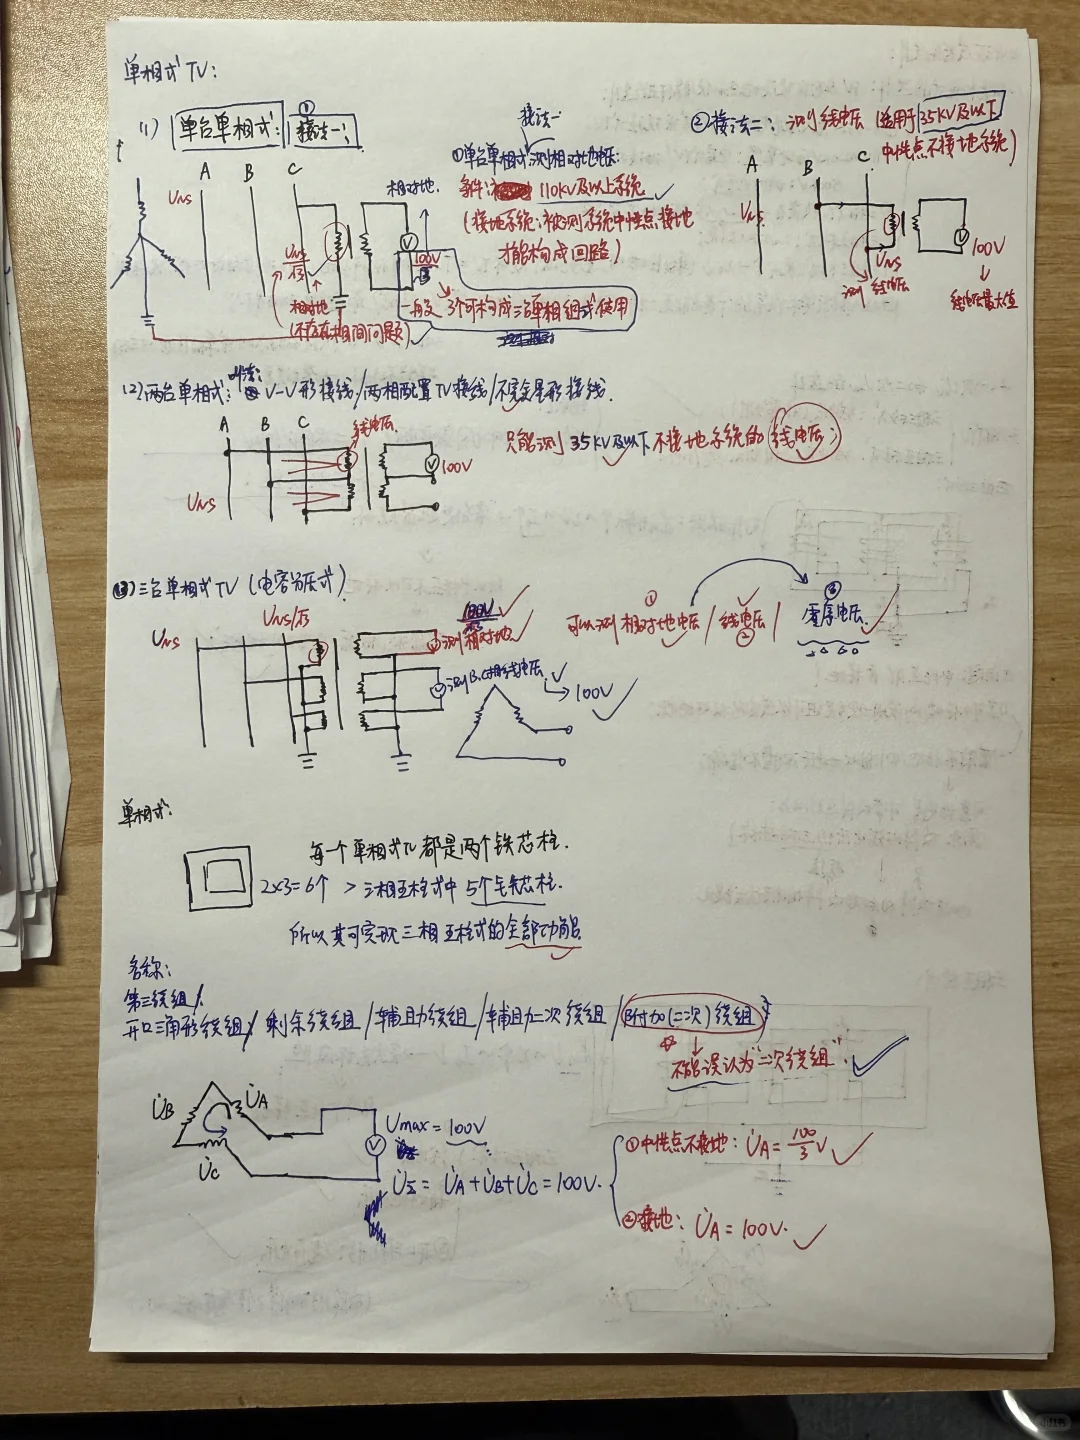 单相式TV:
(1) 单台单相式: ①接法一:
A B C
UNS
UNS/√3
相对地
(不存在相间问题)
相对地.
V
100V/√3
接法一
①单台单相式测相对地电压:
条件: 110KV及以上系统
(接地系统:被测系统中性点接地
才能构成回路)
一般 3个可构成三台单相组式使用
②接法二: 测线电压 (适用于35KV及以下
中性点不接地系统)
A B C
UNS
UNS
测线电压
V 100V
线电压最大值
(2)两台单相式: 叫法: V-V形接线/两相配置TV接线/不完全星形接线.
A B C 线电压
UNS
V 100V
只能测35KV及以下不接地系统的线电压;
(3)三台单相式TV(电容分压式)
UNS
UNS/√3
100V/√3
测相对地
V 测B.C相线电压.
100V
可以测相对地电压①/线电压②/零序电压③
单相式:
每一个单相式TV都是两个铁芯柱.
2×3=6个 > 三相五柱式中5个铁芯柱.
所以其可实现三相五柱式的全部功能
名称:
第三绕组/
开口三角形绕组/剩余绕组/辅助绕组/辅助二次绕组/附加(二次)绕组
不能误认为"二次绕组".
U̇B U̇A
U̇C
V
Umax = 100V
U̇Σ = U̇A+U̇B+U̇C = 100V.
①中性点不接地: U̇A = 100/3 V
②接地: U̇A = 100V.
小红书